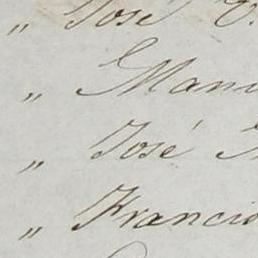 „ José
„ Man
„ José
„ Francis